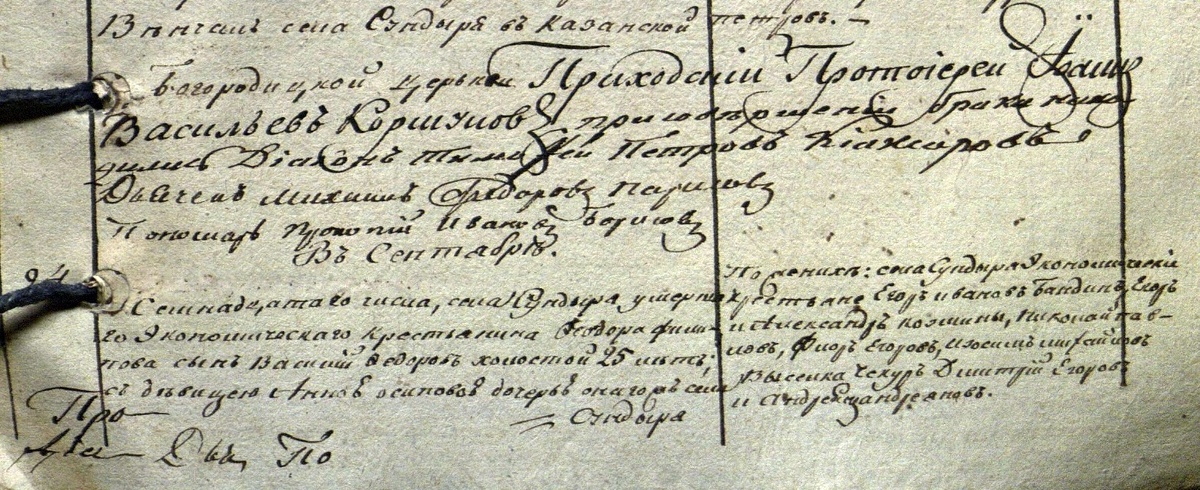 Вѣнчалъ села Сундыря въ казанской петровъ. —
богородицкой церкви Приходскій Протоіерей Іоанн
Васильевъ Коршуновъ при совѣршеніи брака находи
лись Діаконъ Тимофей Петровъ Кіаксаровъ
Дьячекъ михаилъ Федоровъ
Пономарь прокопій Ивановъ борисовъ
Въ Сентябрѣ.
24
Семнадцатаго числа, села Сундыря умерша
го Экономическаго крестьянина Феодора фили-
пова сынъ Василій федоровъ холостой 25 лѣтъ;
съ дѣвицею Анной осиповой дочерью онагожъ села
= Сундыря
По мнихъ: села Сундыря Экономическіи
крестьяне Егоръ ивановъ бандинъ, Егоръ
и Александръ козмины, николай пав-
ловъ, Флоръ Егоровъ, иосифъ михайловъ
Выселка Чекуръ Дмитрій Егоровъ
и Андрей андреяновъ.
Про
Дья По